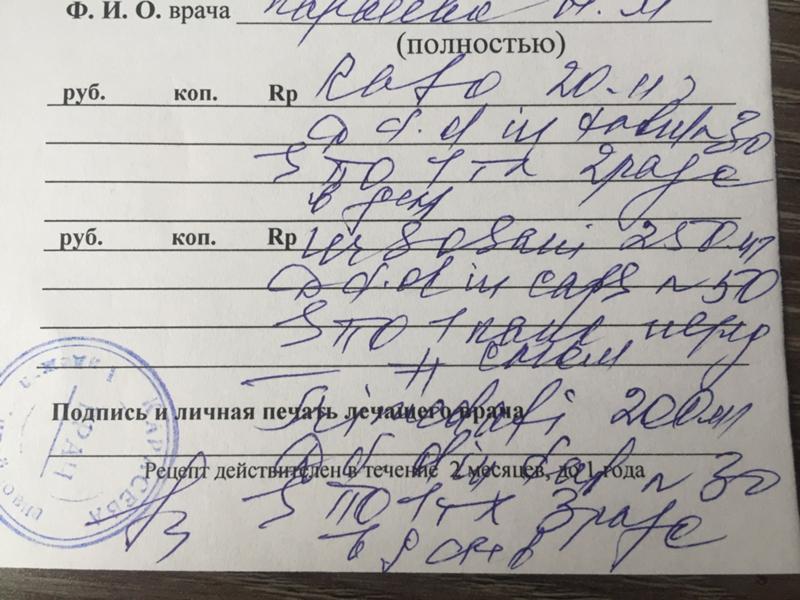 Ф. И. О. врача Карасева Н. М
(полностью)
руб. коп. Rp 20 мг
D t. d in tabul N 30
S по 1 тх 2 раза
в день
руб. коп. Rp Ursosani 250 мг
D t. d in caps N 50
S по 1 капс перед
сном
Подпись и личная печать лечащего врача
200 мг
Рецепт действителен в течение 2 месяцев, до 1 года
D t. d in tab N 30
S по 1 тх 3 раза
в день
КАРАСЕВА
ВРАЧ